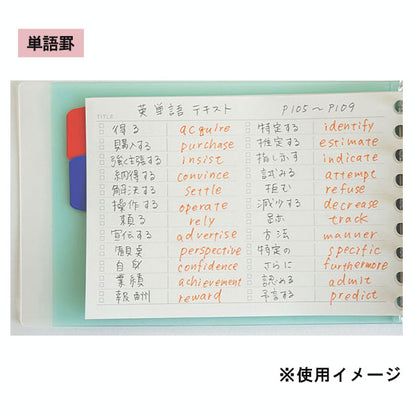 単語罫
TITLE
英単語 テキスト P105～P109
得る acquire
購入する purchase
強く主張する insist
納得する convince
解決する settle
操作する operate
頼る rely
宣伝する advertise
観点 perspective
自身 confidence
業績 achievement
報酬 reward
特定する identify
推定する estimate
指し示す indicate
試みる attempt
拒む refuse
減少する decrease
跡 track
方法 manner
特定の specific
さらに furthermore
認める admit
予言する predict
※使用イメージ